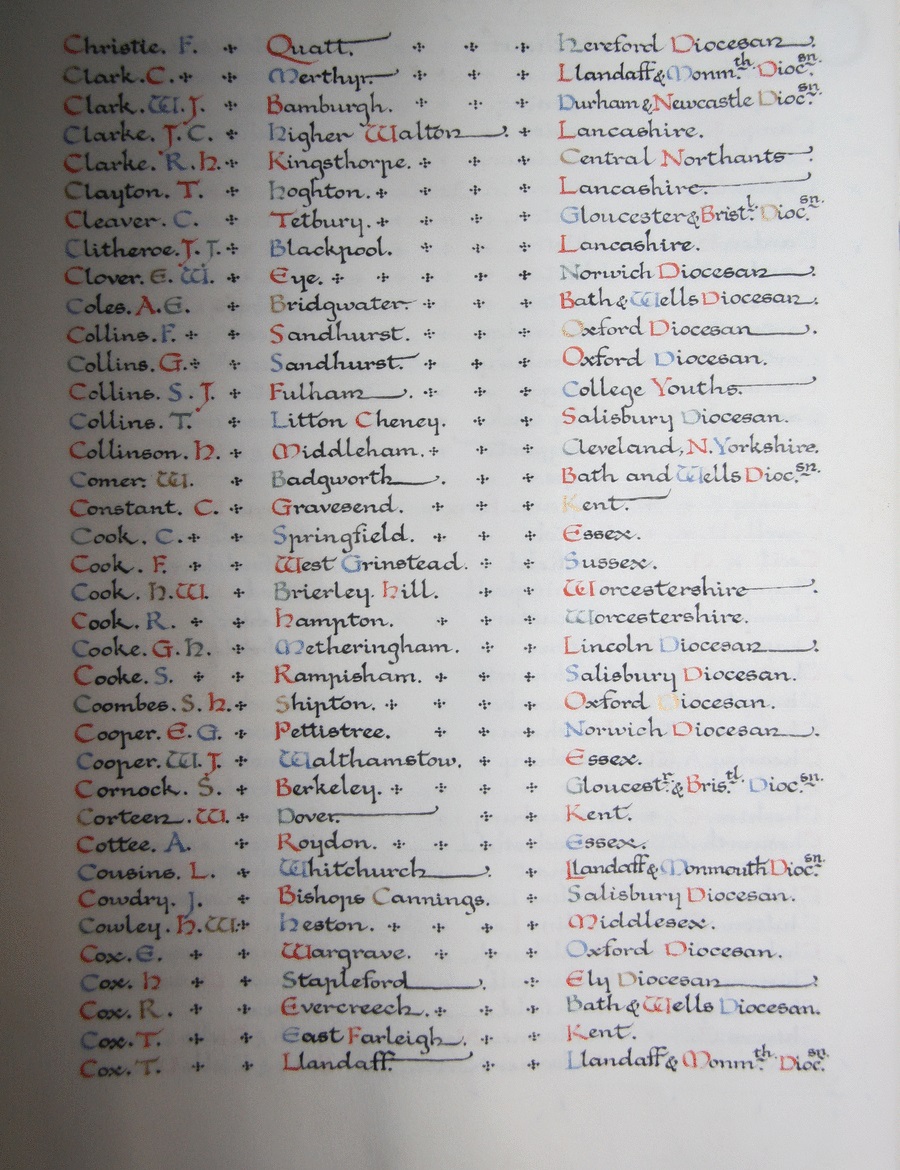 Christie. F. Quatt. Hereford Diocesan.
Clark. C. Merthyr. Llandaff & Monm.th Dioc.sn.
Clark. W. J. Bamburgh. Durham & Newcastle Dioc.sn.
Clarke. J. C. Higher Walton. Lancashire.
Clarke. R. H. Kingsthorpe. Central Northants.
Clayton. T. Hoghton. Lancashire.
Cleaver. C. Tetbury. Gloucester & Brist.l Dioc.sn.
Clitheroe. J. T. Blackpool. Lancashire.
Clover. E. W. Eye. Norwich Diocesan.
Coles. A. E. Bridgwater. Bath & Wells Diocesan.
Collins. F. Sandhurst. Oxford Diocesan.
Collins. G. Sandhurst. Oxford Diocesan.
Collins. S. J. Fulham. College Youths.
Collins. T. Litton Cheney. Salisbury Diocesan.
Collinson. H. Middleham. Cleveland, N. Yorkshire.
Comer. W. Badgworth. Bath and Wells Dioc.sn.
Constant. C. Gravesend. Kent.
Cook. C. Springfield. Essex.
Cook. F. West Grinstead. Sussex.
Cook. H. W. Brierley Hill. Worcestershire.
Cook. R. Hampton. Worcestershire.
Cooke. G. H. Metheringham. Lincoln Diocesan.
Cooke. S. Rampisham. Salisbury Diocesan.
Coombes. S. H. Shipton. Oxford Diocesan.
Cooper. E. G. Pettistree. Norwich Diocesan.
Cooper. W. J. Walthamstow. Essex.
Cornock. S. Berkeley. Gloucest.r & Bris.tl Dioc.sn.
Corteen. W. Dover. Kent.
Cottee. A. Roydon. Essex.
Cousins. L. Whitchurch. Llandaff & Monmouth Dioc.sn
Cowdry. J. Bishops Cannings. Salisbury Diocesan.
Cowley. H. W. Heston. Middlesex.
Cox. E. Wargrave. Oxford Diocesan.
Cox. H Stapleford. Ely Diocesan.
Cox. R. Evercreech. Bath & Wells Diocesan.
Cox. T. East Farleigh. Kent.
Cox. T. Llandaff. Llandaff & Monm.th Dioc.sn.